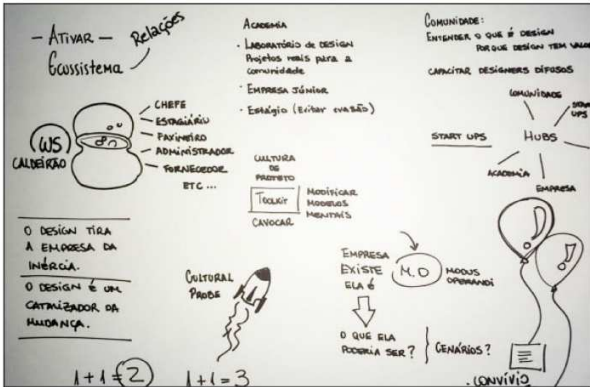 — ATIVAR —
ECOSSISTEMA
RELAÇÕES
WS
CALDEIRÃO
- CHEFE
- ESTAGIÁRIO
- FAXINEIRO
- ADMINISTRADOR
- FORNECEDOR
ETC ...
O DESIGN TIRA
A EMPRESA DA
INÉRCIA.
O DESIGN É UM
CATALIZADOR DA
MUDANÇA.
1+1=2
1+1=3
ACADEMIA
· LABORATÓRIO de DESIGN
Projetos reais para a
comunidade
· EMPRESA JÚNIOR
· Estágio (Evitar evasão)
CULTURA
DE
PROJETO
TOOLKIT
CAVOCAR
MODIFICAR
MODELOS
MENTAIS
CULTURAL
PROBE
EMPRESA
EXISTE
ELA É
M.O
MODUS
OPERANDI
O QUE ELA
PODERIA SER?
CENÁRIOS?
COMUNIDADE:
ENTENDER O QUE É DESIGN
PORQUE DESIGN TEM VALOR
CAPACITAR DESIGNERS DIFUSOS
COMUNIDADE
START
UPS
START UPS
HUBS
ACADEMIA
EMPRESA
. CONVÍVIO